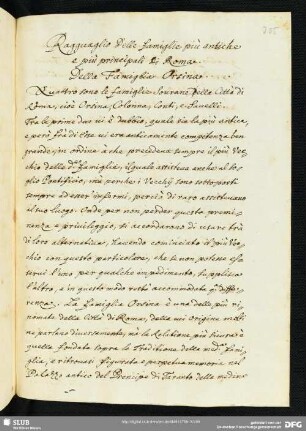 Ragguaglio delle famiglie più antiche
e più principali di Roma.
Della Famiglia Orsina.
Quattro sono le famiglie sourane della Città di
Roma, cioè Orsina, Colonna, Conti, e Sauelli.
Tra le prime due vi è dubbio, quale sia la più antica,
e però frà di esse vi era anticamente competenza
grande, in ordine à che precedeua sempre il più Vec-
chio della famiglia, il quale assisteua anche al so-
glio Pontificio, mà perche i Vecchij sono sottoposti
sempre ad esser infermi, perciò di raro assisteuano
al suo luogo. Onde per non perder questa premi-
nenza e priuileggio, si accordarono di usare trà
di loro alternatiua, hauendo cominciato il più Vec-
chio con questo particolare, che se non potesse es-
serui l'uno per qualche impedimento, supplisca
l'altro, e in questo modo restò accommodata
La famiglia Orsina è una delle più ri-
nomate della Città di Roma, della cui origine
parlano diuersamente, mà la Relatione più sicura è
quella fondata sopra la Traditione della fami-
glia, e ritrouasi figurata e perpetua memoria nel
Palazzo antico del Prencipe di Taranto della medema
SLUB
DFG